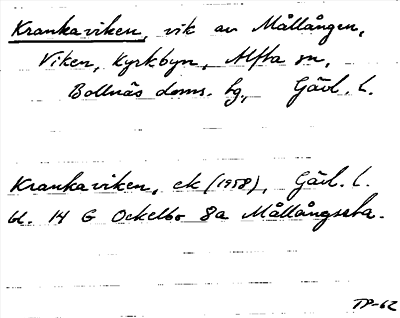 Krankaviken, vik av Mållången,
Viken, Kyrkbyn, Alfta sn,
Bollnäs doms. hg, Gävl. l.
Krankaviken, ek (1958), Gävl. l.
bl. 14 G Ockelbo 8a Mållångssta.
TP-62